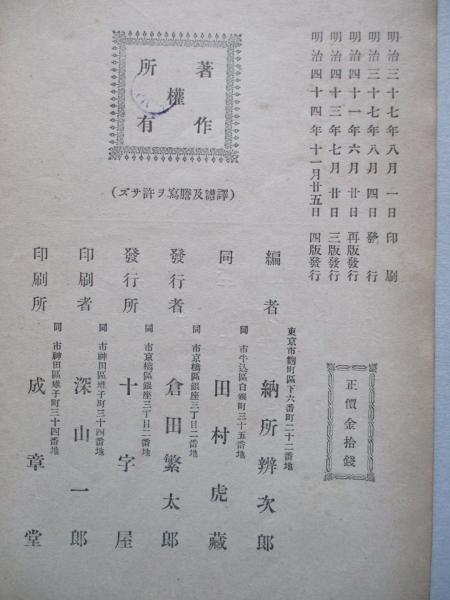 明治三十七年八月一日印刷
明治三十七年八月四日發行
明治四十一年六月廿日再版發行
明治四十三年七月廿日三版發行
明治四十四年十一月廿五日四版發行
正價金拾錢
著作
權
所有
（譯譜及謄寫ヲ許サズ）
東京市麴町區下六番町二十二番地
編者 納所辨次郎
同 市牛込區白銀町三十五番地
同 田村虎藏
同 市京橋區銀座三丁目二番地
發行者 倉田繁太郎
同 市京橋區銀座三丁目二番地
發行所 十字屋
同 市神田區雉子町三十四番地
印刷者 深山一郎
同 市神田區雉子町三十四番地
印刷所 成章堂